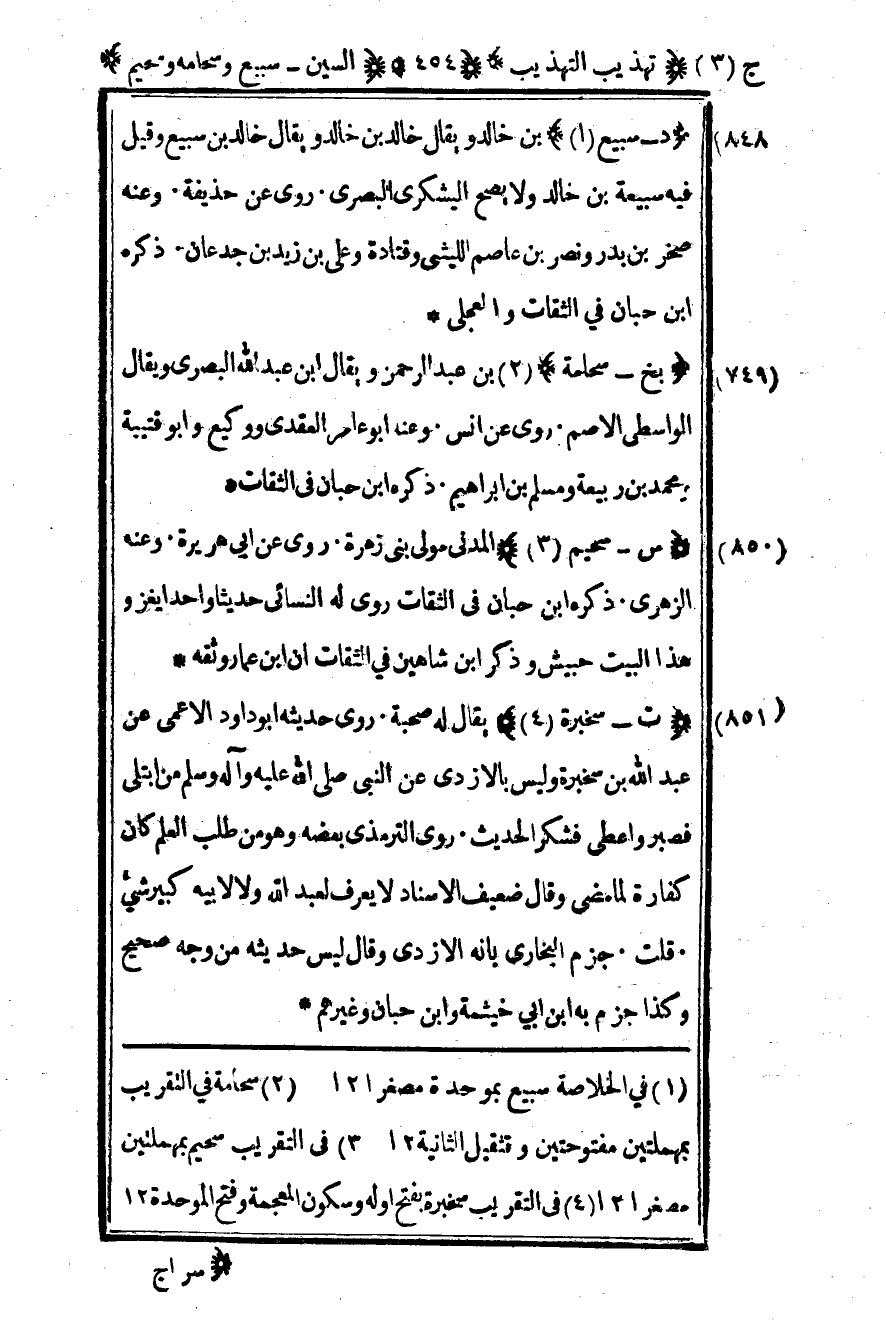 ج (٣) ﴿ تهذيب التهذيب ﴾ ﴿ ٤٥٤ ﴾ ﴿ السين ــ سبيع وسحامه وسحيم ﴾
(٨٤٨ ﴿ د ــ سبيع (١) ﴾ بن خالد ويقال خالد بن خالد ويقال خالد بن سبيع وقيل
فيه سبيعة بن خالد ولا يصح اليشكرى البصرى ٠ روى عن حذيفة ٠ وعنه
صخر بن بدر ونصر بن عاصم الليثى وقتادة وعلى بن زيد بن جدعان ٠ ذكره
ابن حبان في الثقات والعجلى *
(٧٤٩) ﴿ بخ ــ سحامة ﴾ (٢) بن عبد الرحمن ويقال ابن عبد الله البصرى ويقال
الواسطى الاصم ٠ روى عن انس ٠ وعنه ابو عامر العقدى ووكيع وابو قتيبة
ومحمد بن ربيعة ومسلم بن ابراهيم ٠ ذكره ابن حبان فى الثقات *
(٨٥٠) ﴿ س ــ سحيم (٣) ﴾ المدنى مولى بنى زهرة ٠ روى عن ابي هريرة ٠ وعنه
الزهرى ٠ ذكره ابن حبان فى الثقات روى له النسائى حديثا واحدا يغزو
هذا البيت حبيش وذكر ابن شاهين في الثقات ان ابن عمار وثقه *
(٨٥١) ﴿ ت ــ سخبرة (٤) ﴾ يقال له صحبة ٠ روى حديثه ابو داود الاعمى عن
عبد الله بن سخبرة وليس بالازدى عن النبى صلى الله عليه وآله وسلم من ابتلى
فصبر واعطى فشكر الحديث ٠ روى الترمذى بعضه وهو من طلب العلم كان
كفارة لما مضى وقال ضعيف الاسناد لا يعرف لعبد الله ولا لابيه كبير شئ
٠ قلت ٠ جزم البخارى بانه الازدى وقال ليس حديثه من وجه صحيح
وكذا جزم به ابن ابي خيثمة وابن حبان وغيرهم *
(١) في الخلاصة سبيع بموحدة مصغرا ١٢ (٢) سحامة في التقريب
بمهملتين مفتوحتين وتثقيل الثانية ١٢ ٣) فى التقريب سحيم بمهملتين
مصغرا ١٢ (٤) فى التقريب سخبرة بفتح اوله وسكون المعجمة وفتح الموحدة ١٢
﴿ سراج